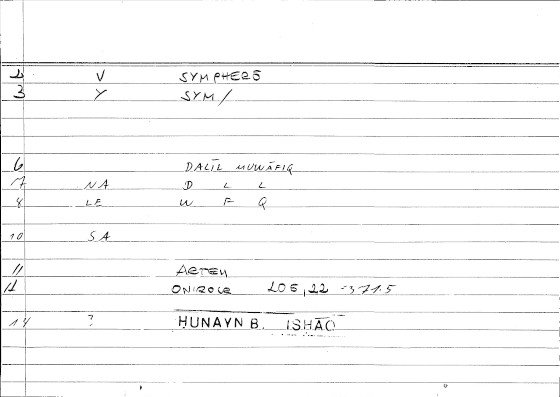 2 V SYMPHERŌ
3 Y SYM/
6 DALĪL MUWĀFIQ
7 NA D L L
8 LE W F Q
10 SA
11 ARTEM
12 ONIROCR 205,22 371.5
14 ? HUNAYN B. ISHĀQ